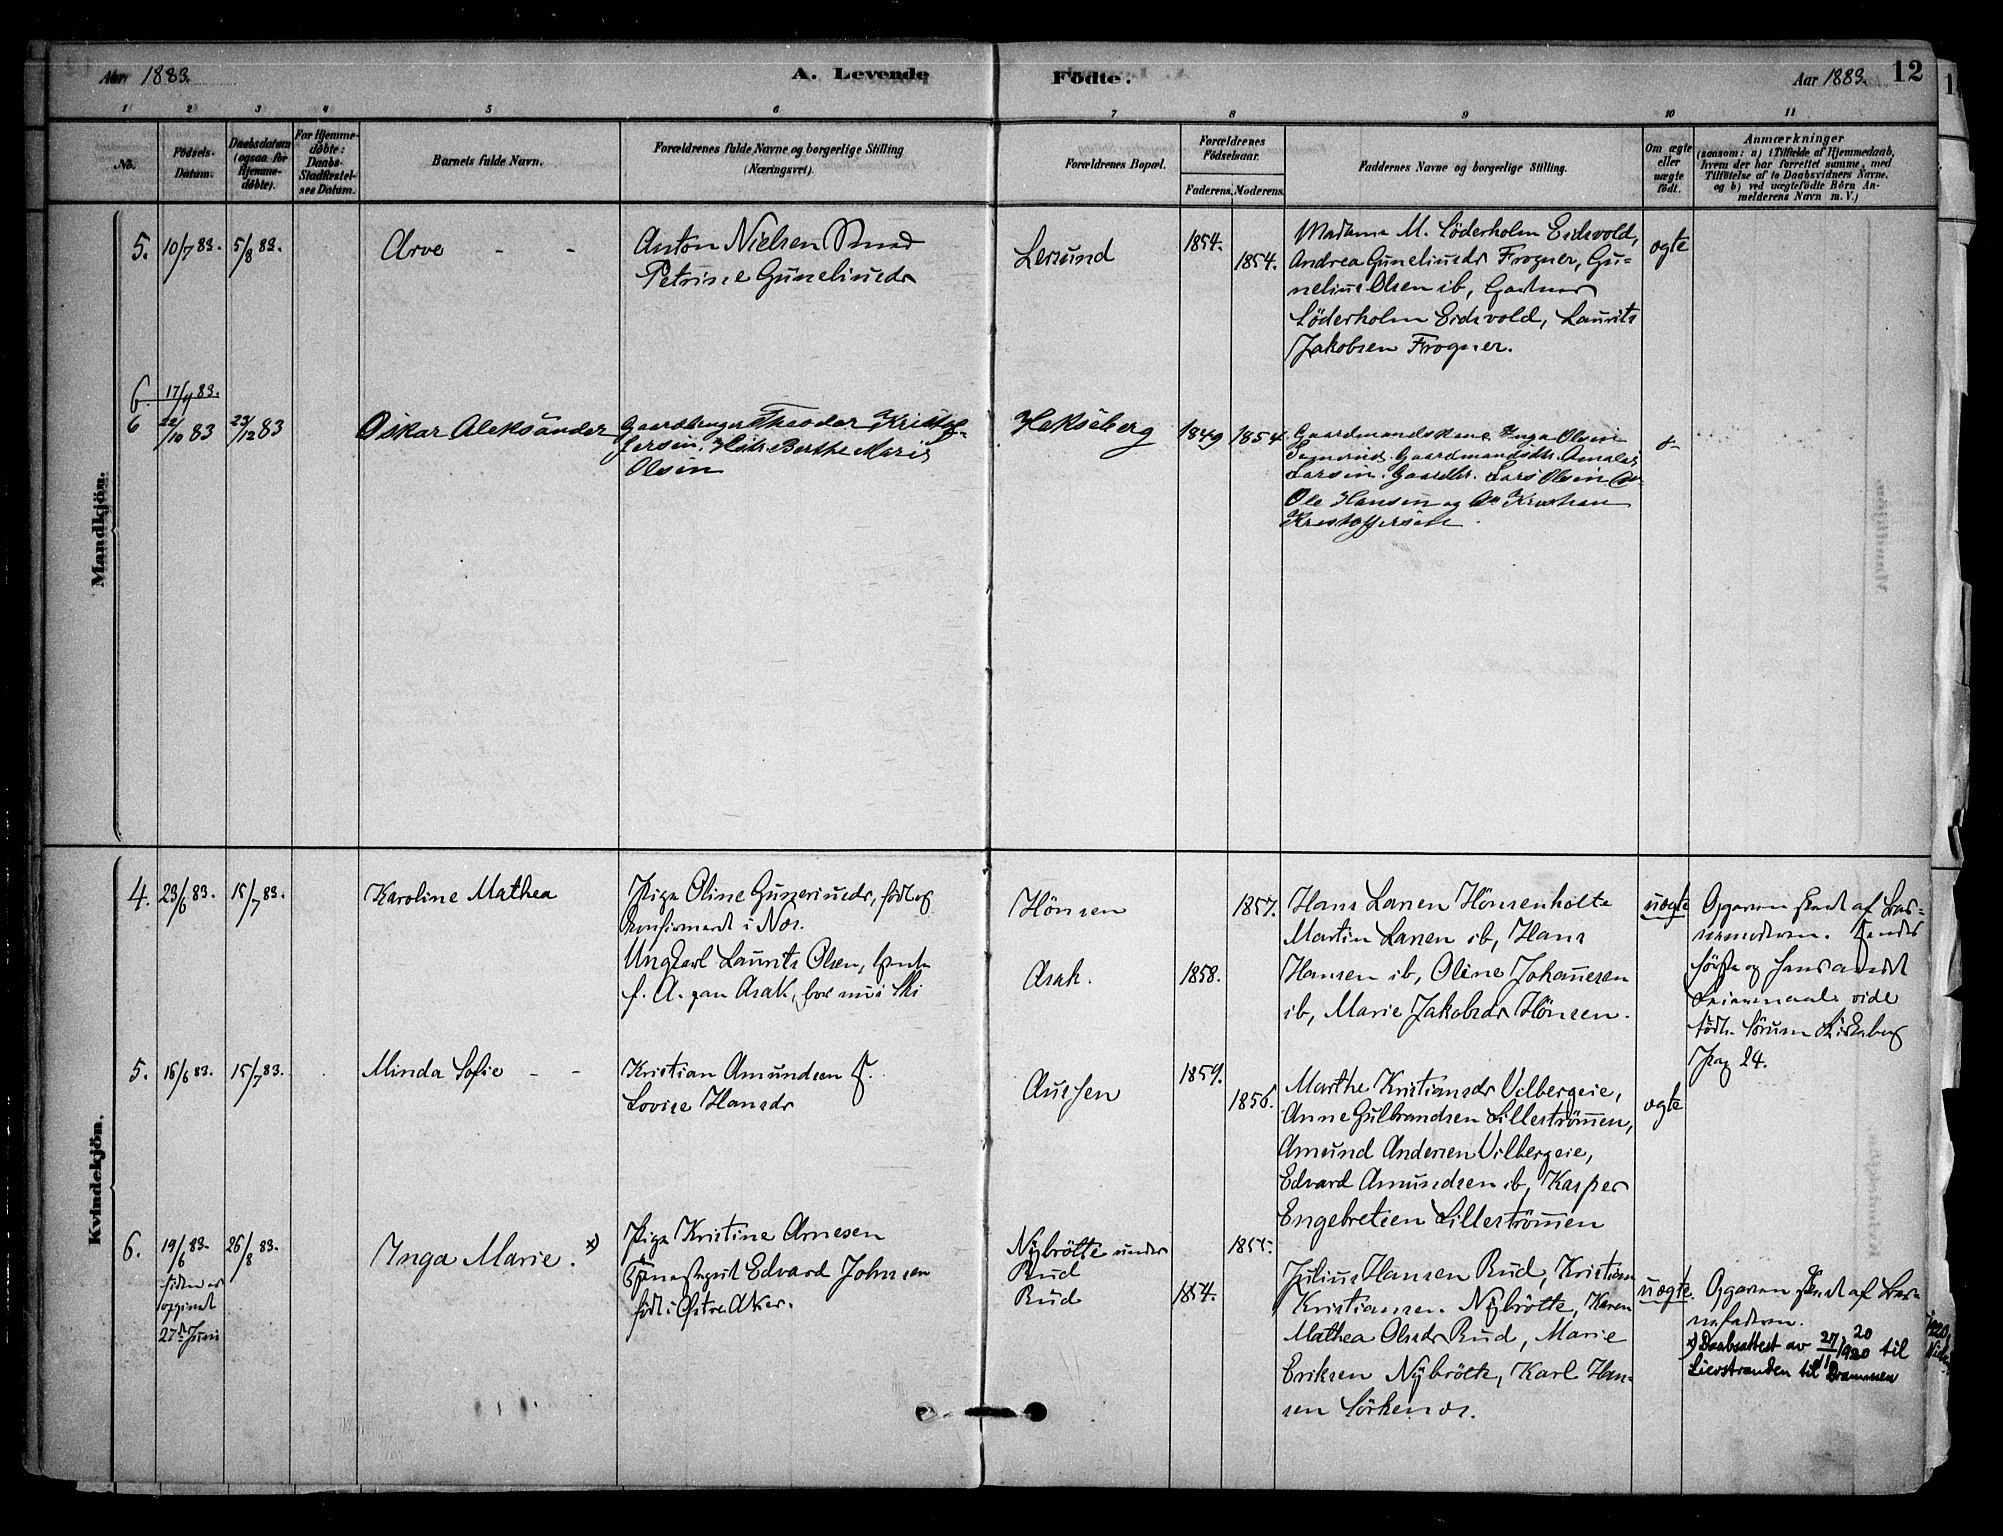 Aar 1883.
A. Levende
Födte.
Aar 1883.
12
1 2 3 4 5 6 7 8 9 10 11
No.
Födsels-
Datum.
Daabsdatum
(ogsaa for
Hjemme-
døbte).
For Hjemme-
døbte:
Daabs-
Stadfæstel-
ses Datum.
Barnets fulde Navn.
Forældrenes fulde Navne og borgerlige Stilling
(Næringsvei).
Forældrenes Bopæl.
Forældrenes
Födselsaar.
Faderens. Moderens.
Faddernes Navne og borgerlige Stilling.
Om ægte
eller
uægte
födt.
Anmærkninger
(saasom: a) i Tilfælde af Hjemmedaab,
hvem der har forrettet samme, med
Tilföielse af to Daabsvidners Navne.
og b) ved uægtefödte Börn An-
melderens Navn m. V.)
Mandkjön.
5. 10/7 83. 5/8 83.
Arve - -
Anton Nielsen
Petrine Guneliusdr
Lersund
1854.
1854.
Madame M. Söderholm Eidsvold,
Andrea Guneliusdr Frogner, Gu-
nelius Olsen ib,
Söderholm Eidsvold, Laurits
Jakobsen Frogner.
ægte
6. 17/9 83.
6 22/10 83 23/12 83
Oskar Aleksander
Gaardbruger Theodor Kristof-
fersen. Berthe Marie
Olsen
Hekseberg
1849 1854
Gaardmandskone Inga Olsen
Gaardmandsdtr. Amalie
Larsen. Gaardbr. Lars Olsen
Ole Hansen og Kristian
Kristoffersen.
Kvindekjön.
4. 23/6 83. 15/7 83.
Karoline Mathea
Pige Oline Gunneriusdr, født og
konfirmeret i Næs.
Ungkarl Laurits Olsen,
f. A. paa Asak, bor nu i Ski
Hönsen
Asak.
1857.
1858.
Hans Larsen Hönsenholte
Martin Larsen ib, Hans
Hansen ib, Oline Johannesen
ib, Marie Jakobsdr Hönsen.
uægte
Opgaven skeet af Bar-
nemoderen.
første og hans andet
Leiermaal vide
födte Sörum
pag 24.
5. 16/6 83. 15/7 83.
Minda Sofie - -
Kristian Amundsen
Lovise Hansdr
1859.
1856.
Marthe Kristiansdr Vilbergeie,
Anne Gulbrandsen Lilleströmmen,
Amund Andersen Vilbergeie,
Edvard Amundsen ib, Kasper
Engebretsen Lilleströmmen
ægte
6. 19/6 83. 26/8 83.
siden er
opgivet
27de Juni
Inga Marie. x)
Pige Kristine Arnesen
Tjenestegut Edvard Johnsen
födt i Østre Aker.
Nybrötte under
Rud
Rud
1854.
Julius Hansen Rud, Kristian
Kristiansen Nybrötte, Karen
Mathea Olsdr Rud, Marie
Eriksen Nybrötte, Karl Han-
sen
uægte.
Opgaven skeet af Bar-
nefaderen.
x) Daabsattest av 27/11 1920 til
Lierstranden til Drammen